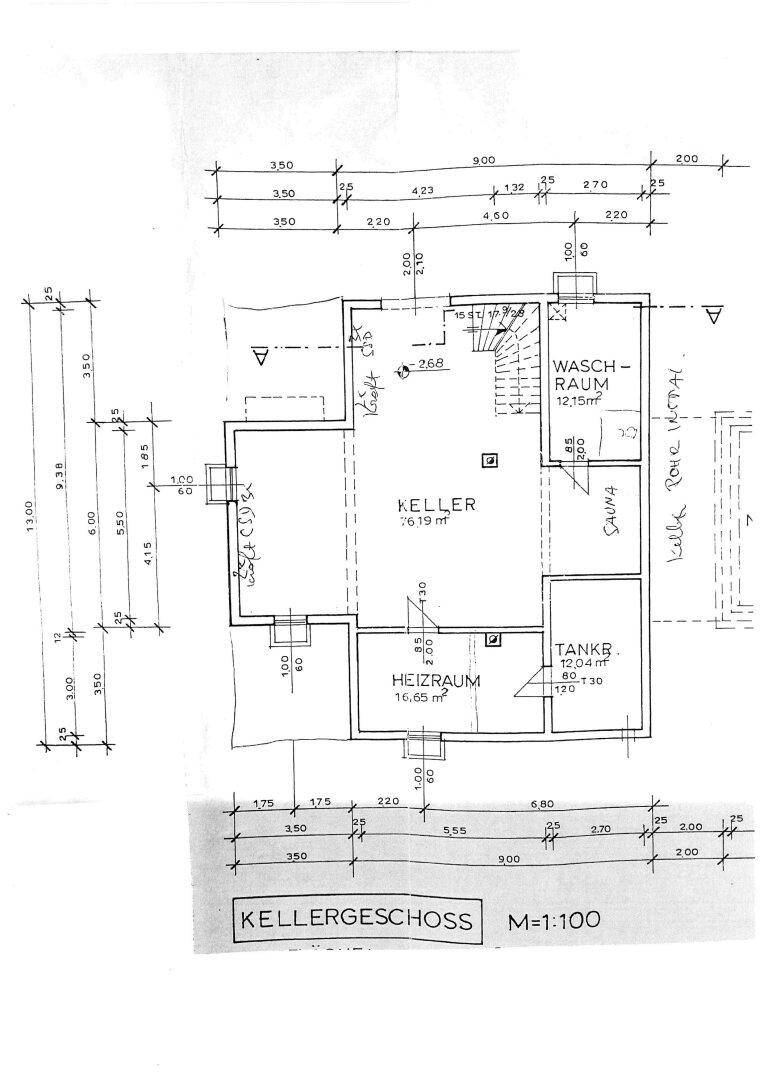 3,50 9,00 2,00
3,50 25 4,23 1,32 25 2,70 25
3,50 2,20 4,60 2,20
2,00
2,10
1,00
60
25
3,50
9,38
13,00
25
6,00
5,50
1,85
4,15
25
12
3,00
3,50
25
15 ST. 17,9/28
A
A
-2,68
WASCH-
RAUM
12,15 m²
85
2,00
1,00
60
KELLER
76,19 m²
SAUNA
T30
85
2,00
HEIZRAUM
16,65 m²
TANKR.
12,04 m²
80
120
T30
1,00
60
1,00
60
1,75 1,75 2,20 6,80
3,50 25 5,55 25 2,70 25 2,00 25
3,50 9,00 2,00
KELLERGESCHOSS M=1:100